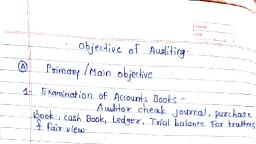 Objective of Auditing.
(A) Primary / Main objective
1- Examination of Accounts Books -
Auditor check journal, purchase
Book, cash Book, Ledger, Trial balance For
& Fair view